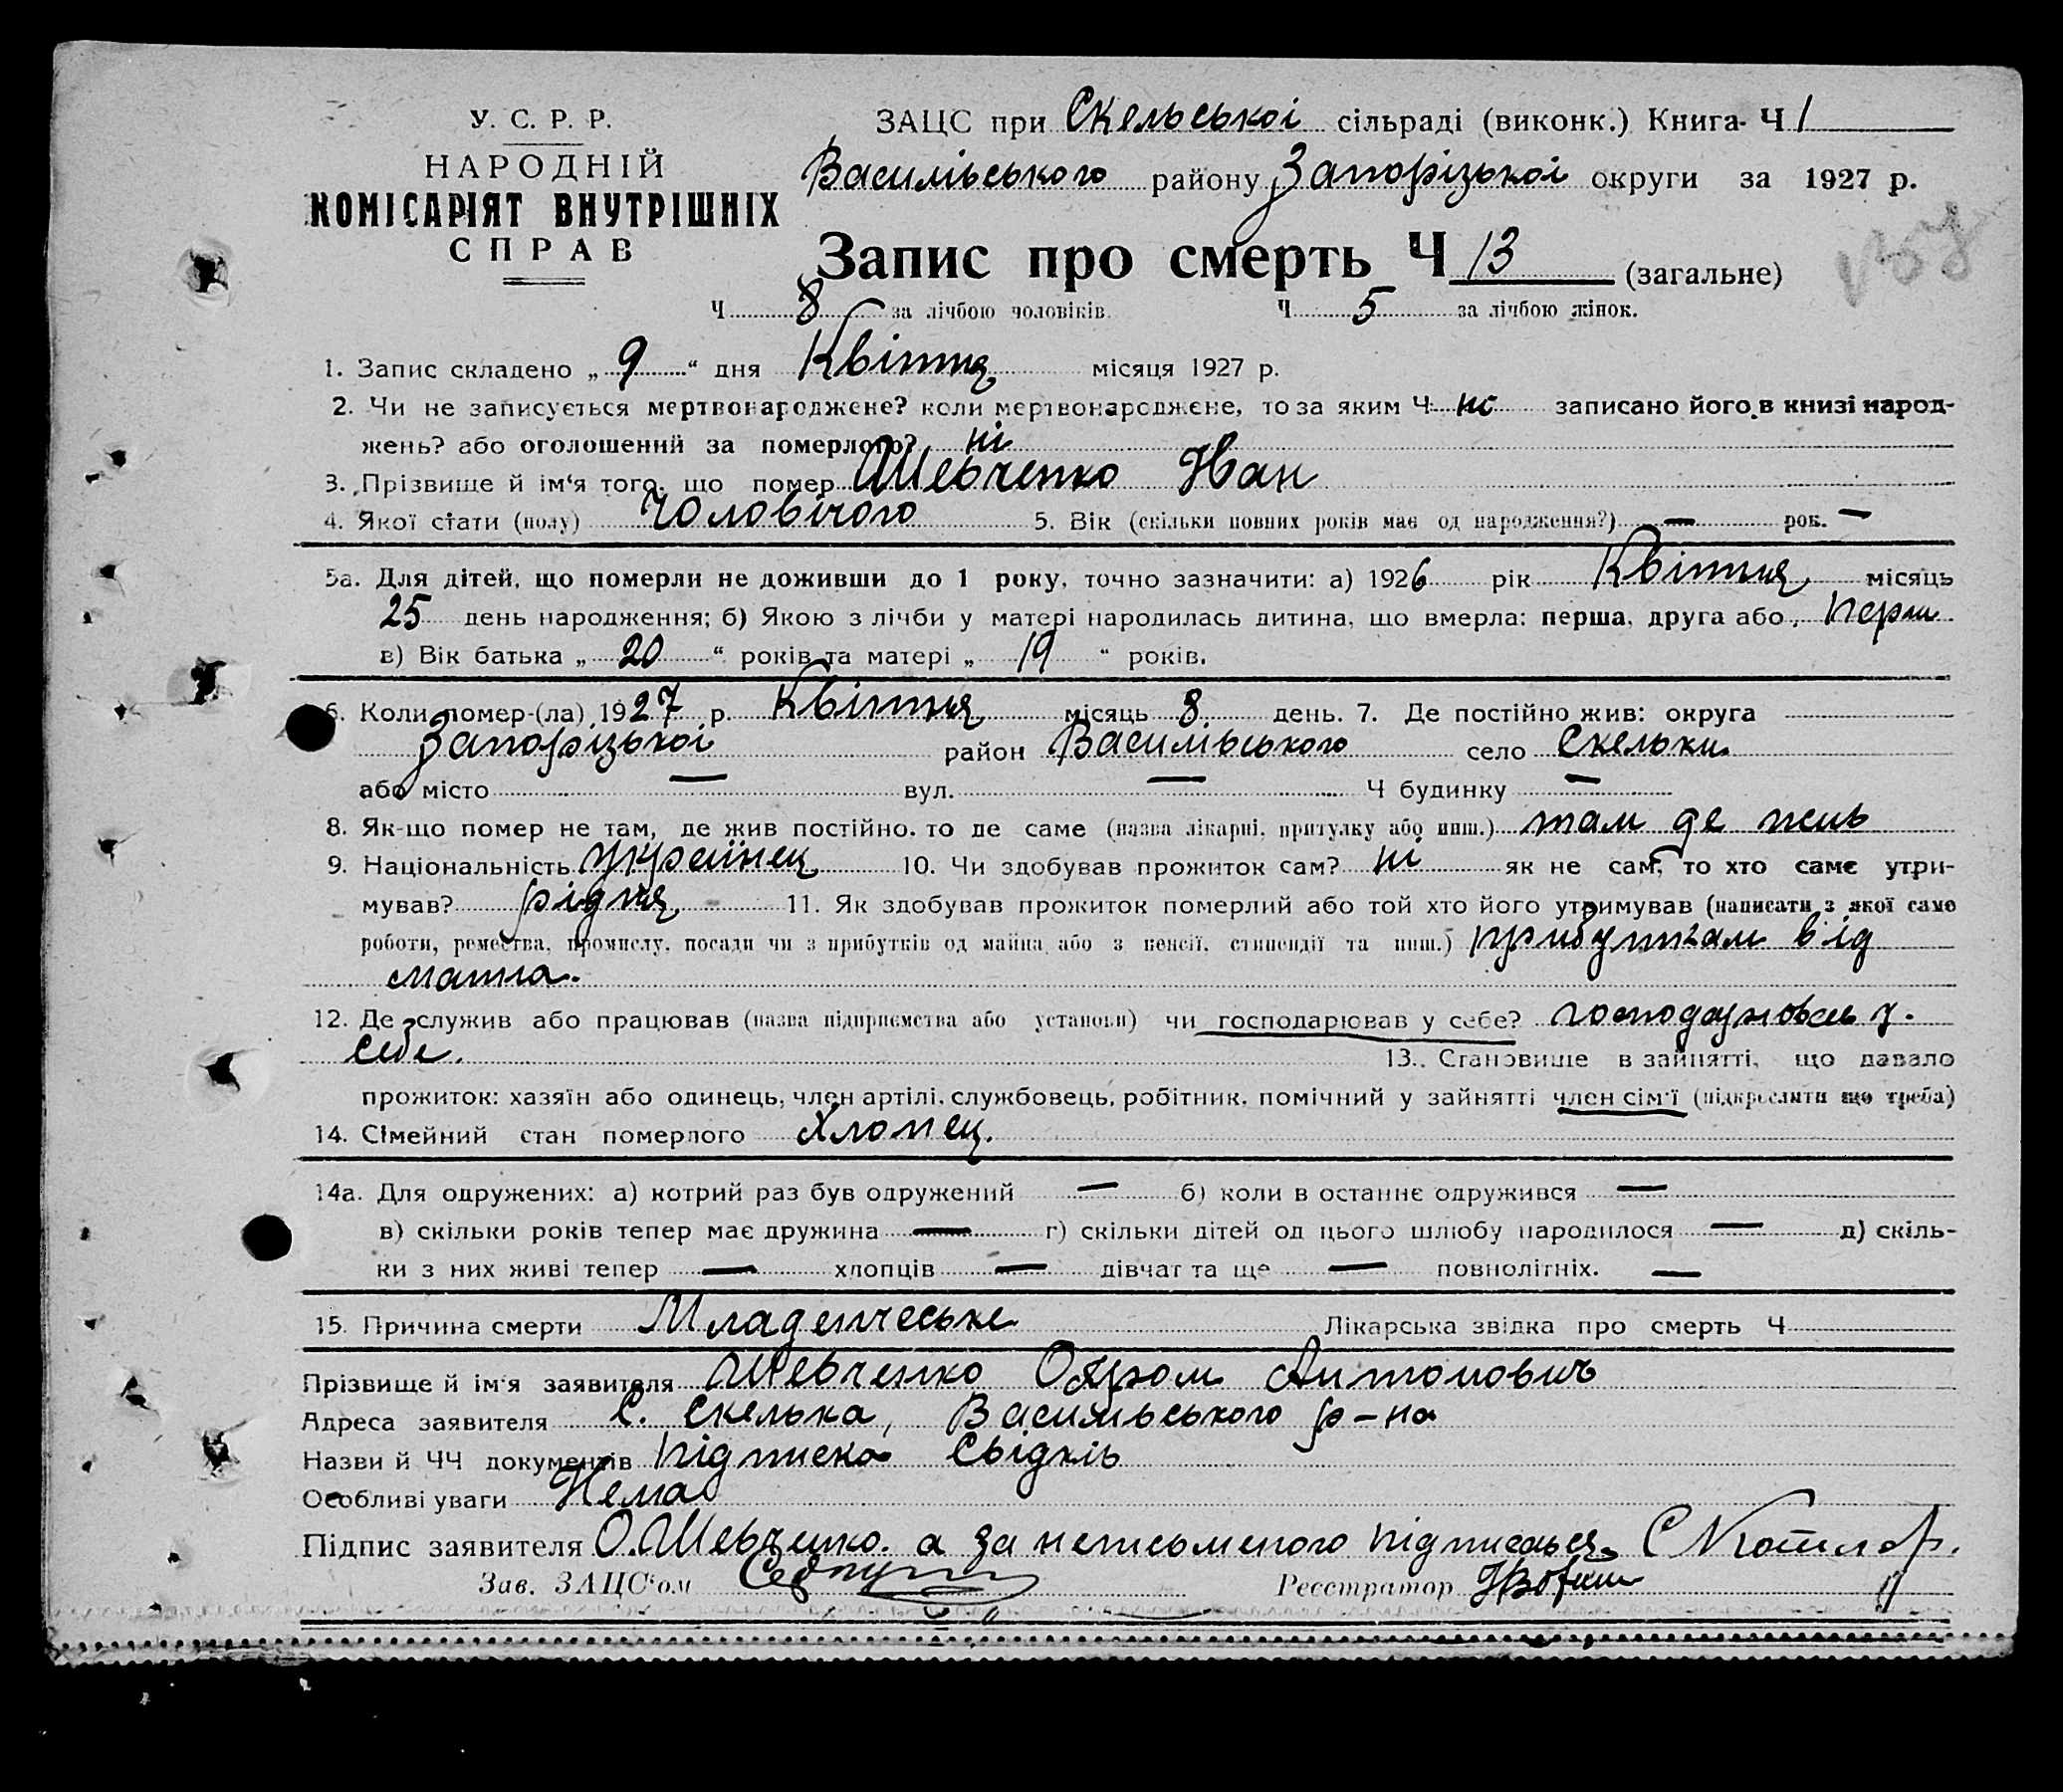 У. С. Р. Р.
НАРОДНІЙ
КОМІСАРІЯТ ВНУТРІШНІХ
СПРАВ
ЗАЦС при Скельської сільраді (виконк.) Книга Ч 1
Василівського району Запорізької округи за 1927 р.
Запис про смерть Ч 13 (загальне)
Ч 8 за лічбою чоловіків. Ч 5 за лічбою жінок.
1. Запис складено „ 9 “ дня Квітня місяця 1927 р.
2. Чи не записується мертвонароджене? коли мертвонароджене, то за яким Ч записано його в книзі народ-
жень? або оголошений за померлого? ні
3. Прізвище й ім'я того, що помер Шевченко Іван
4. Якої стати (полу) Чоловічого 5. Вік (скільки повних років має од народження?) — рок. —
5а. Для дітей, що померли не доживши до 1 року, точно зазначити: а) 1926 рік Квітня місяць
25 день народження; б) Якою з лічби у матері народилась дитина, що вмерла: перша, друга або, перш.
в) Вік батька „ 20 “ років та матері „ 19 “ років.
6. Коли помер-(ла) 1927 р. Квітня місяць 8. день. 7. Де постійно жив: округа
Запорізької район Василівського село Скельки
або місто — вул. — Ч будинку —
8. Як-що помер не там, де жив постійно, то де саме (назва лікарні, притулку або инш.) там де
9. Національність Українец 10. Чи здобував прожиток сам? ні як не сам, то хто саме утри-
мував? рідня 11. Як здобував прожиток померлий або той хто його утримував (написати з якої саме
роботи, ремества, промислу, посади чи з прибутків од майна або з пенсії, стипендії та инш.) прибуткам від
матна.
12. Де служив або працював (назва підприємства або установи) чи господарював у себе? господарював у.
себе. 13. Становище в зайнятті, що давало
прожиток: хазяїн або одинець, член артілі, службовець, робітник, помічний у зайнятті член сім'ї (підкреслити що треба)
14. Сімейний стан померлого Хлопец.
14а. Для одружених: а) котрий раз був одружений — б) коли в останнє одружився —
в) скільки років тепер має дружина — г) скільки дітей од цього шлюбу народилося — д) скіль-
ки з них живі тепер — хлопців — дівчат та ще — повнолітніх. —
15. Причина смерти Младенческе Лікарська звідка про смерть Ч
Прізвище й ім'я заявителя Шевченко Антонович
Адреса заявителя С. Скелька, Василівського р-на
Назви й ЧЧ документів підписка Свідків
Особливі уваги Нема
Підпис заявителя О. Шевченко. а за неписьменого підписався
Зав. ЗАЦС'ом Реєстратор